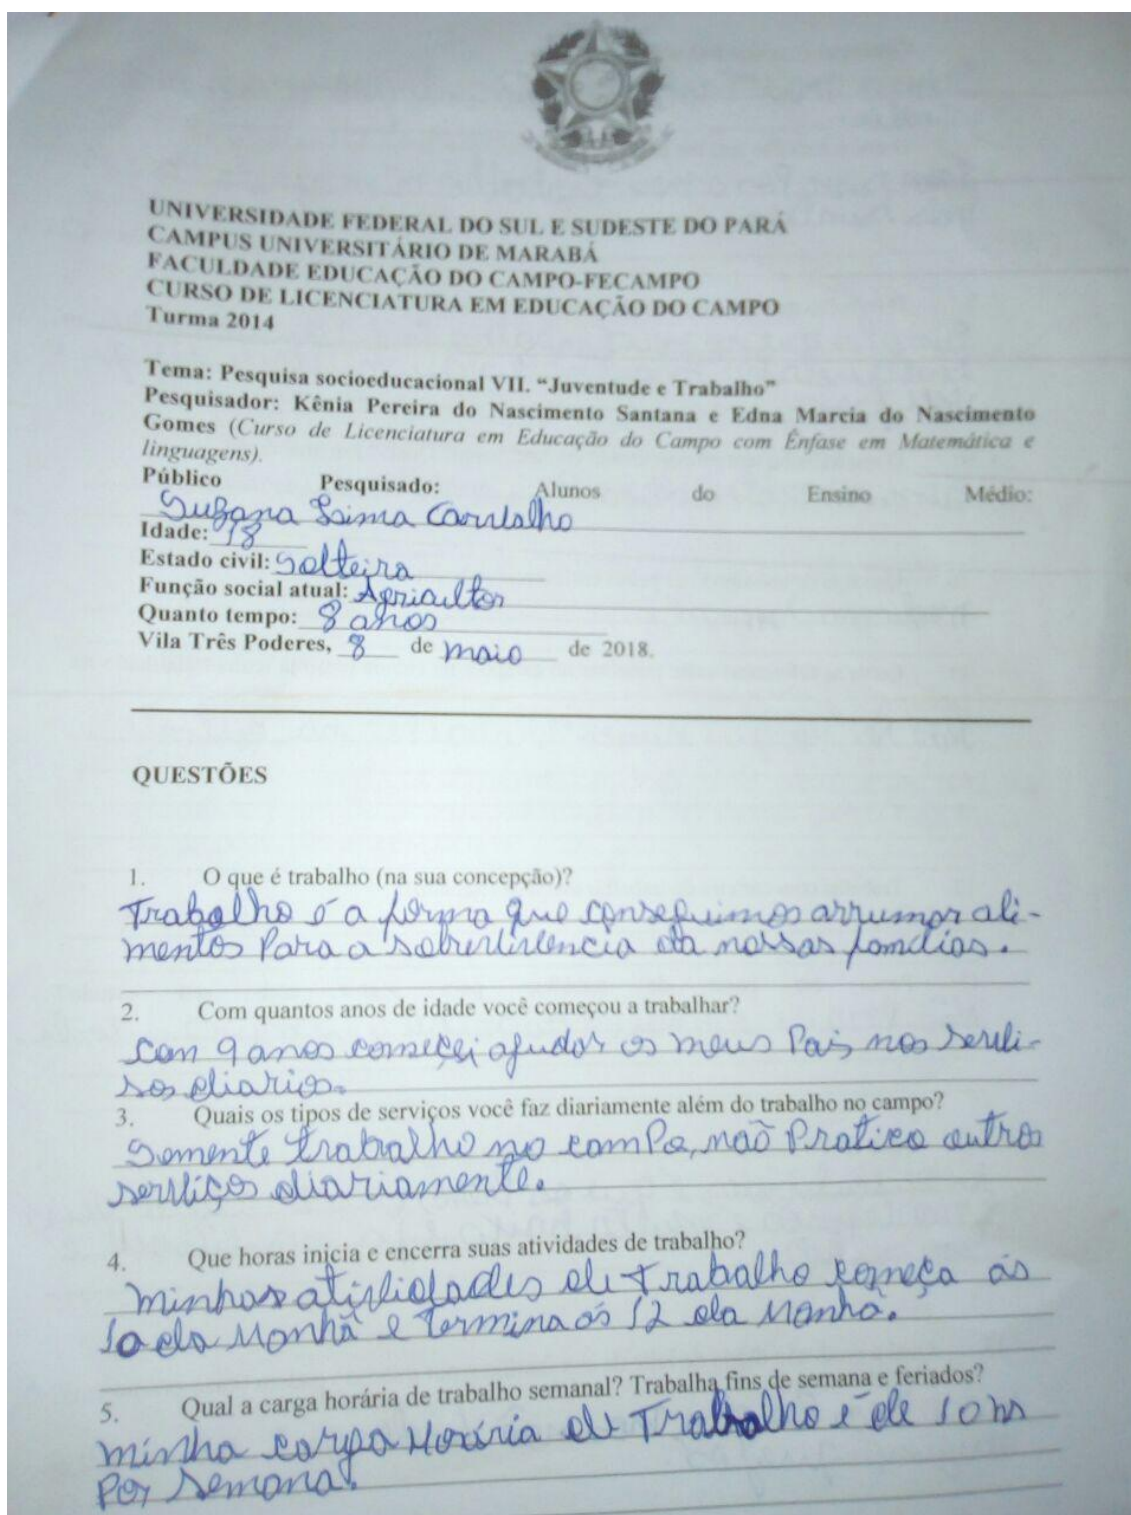 UNIVERSIDADE FEDERAL DO SUL E SUDESTE DO PARÁ
CAMPUS UNIVERSITÁRIO DE MARABÁ
FACULDADE EDUCAÇÃO DO CAMPO-FECAMPO
CURSO DE LICENCIATURA EM EDUCAÇÃO DO CAMPO
Turma 2014
Tema: Pesquisa socioeducacional VII. “Juventude e Trabalho”
Pesquisador: Kênia Pereira do Nascimento Santana e Edna Marcia do Nascimento
Gomes (Curso de Licenciatura em Educação do Campo com Ênfase em Matemática e
linguagens).
Público Pesquisado: Alunos do Ensino Médio:
Suzana Lima Carvalho
Idade: 18
Estado civil: Solteira
Função social atual: Agricultor
Quanto tempo: 8 anos
Vila Três Poderes, 8 de maio de 2018.
QUESTÕES
1. O que é trabalho (na sua concepção)?
Trabalho é a forma que conseguimos arrumar ali-
mentos Para a sobrevivencia da nossas familias.
2. Com quantos anos de idade você começou a trabalhar?
Com 9 anos comecei ajudar os meus Pais nos servi-
sos diarios.
3. Quais os tipos de serviços você faz diariamente além do trabalho no campo?
Somente trabalho no camPo, não Pratico outros
serviços diariamente.
4. Que horas inicia e encerra suas atividades de trabalho?
Minhas atividades de trabalho começa ás
10 da Manhã e termina ás 12 da Manhã.
5. Qual a carga horária de trabalho semanal? Trabalha fins de semana e feriados?
minha carga Horária de Trabalho é de 10 hs
Por semana.